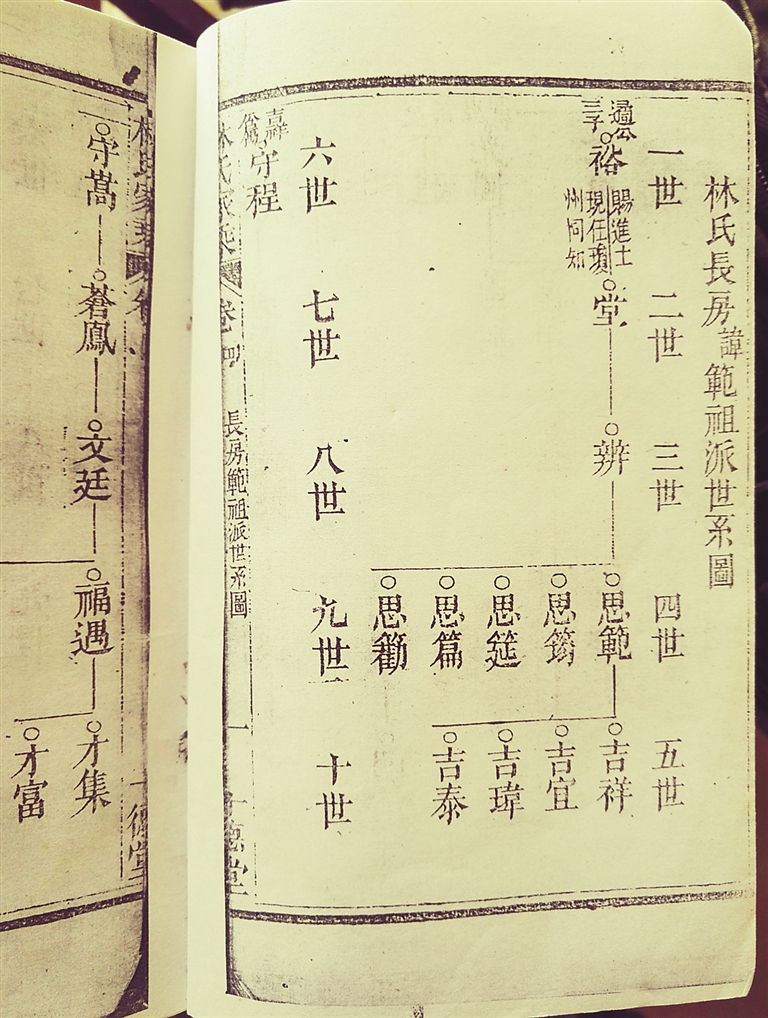 林氏長房諱範祖派世系圖
一世
二世
三世
四世
五世
過公
三子
裕
賜進士
現任瓊
州同知
堂
辨
思範
思筠
思筵
思篇
思勸
吉祥
吉宜
吉瑋
吉泰
六世
七世
八世
九世
十世
守程
林氏家乘
卷四
長房範祖派世系圖
一
德堂
林氏家乘
卷
德堂
守嵩
蒼鳳
文廷
福遇
才集
才富